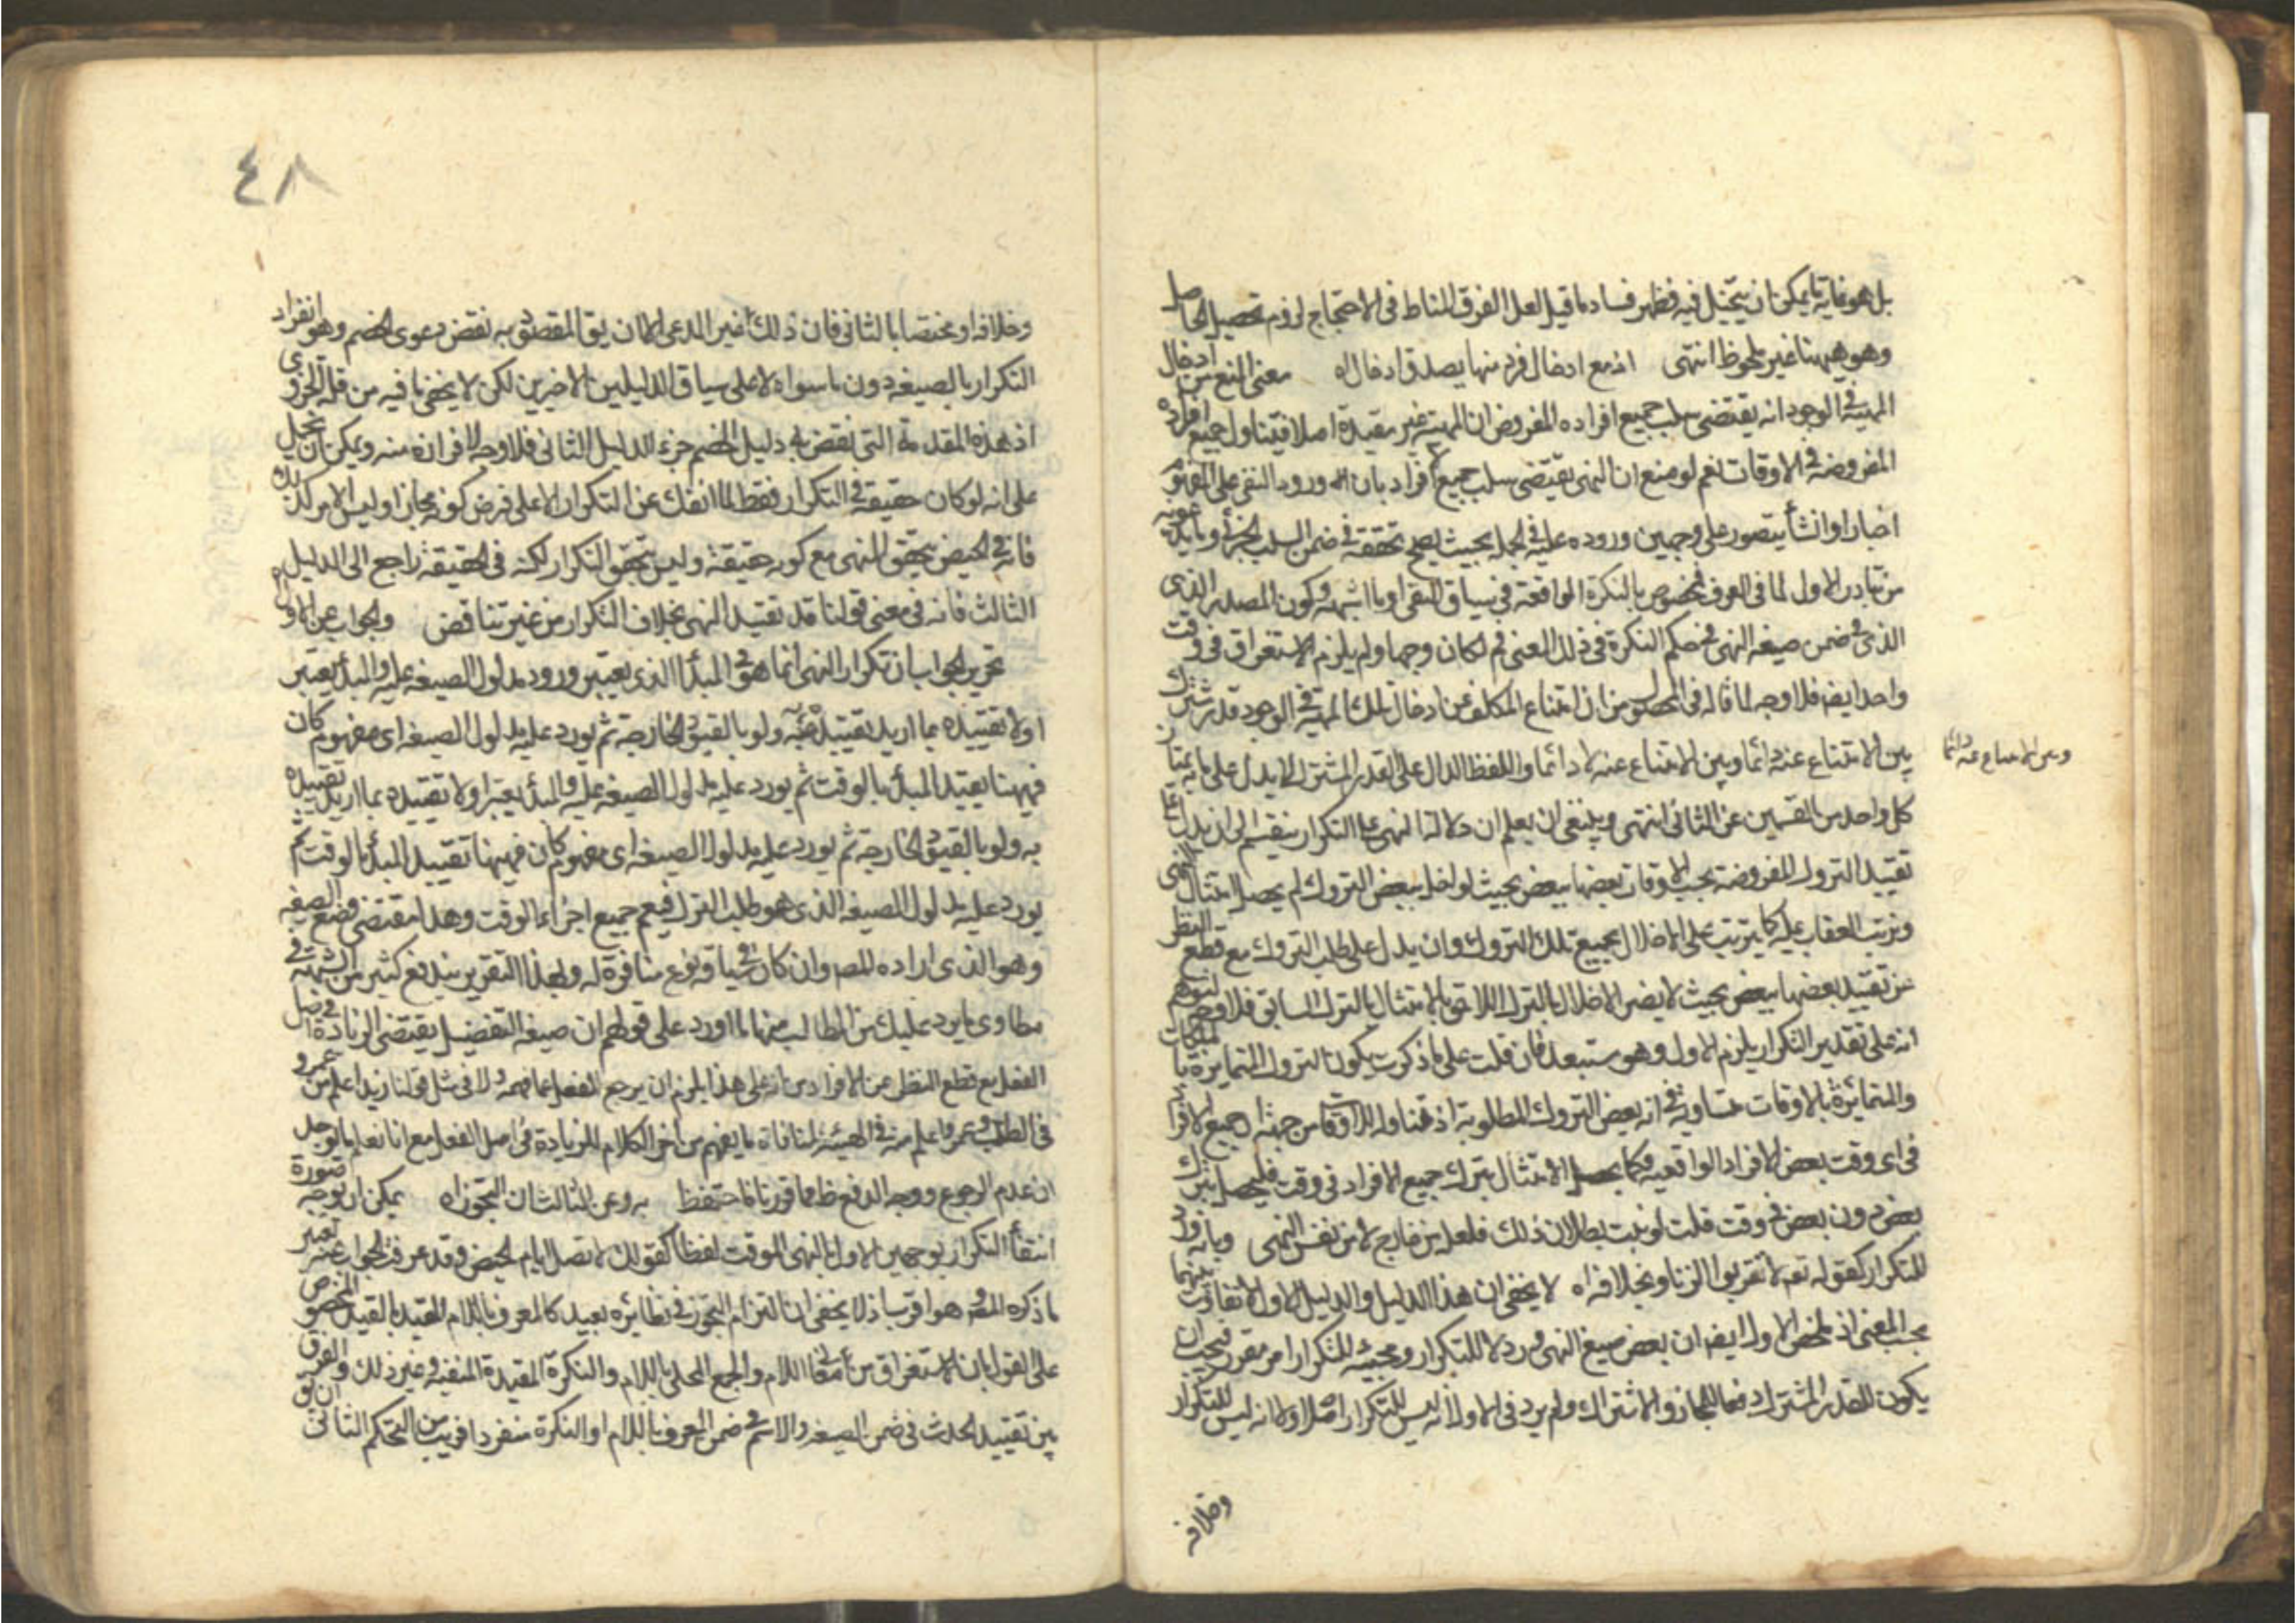 بل هو غاية ما يمكن ان يتخيل فيه فظهر فساد ما قيل لعل الفرق المناط فى الاحتجاج لزوم تحصيل الحاصل
وهو ههنا غير ملحوظ انتهى اذ مع ادخال فرد منها يصدق ادخال اه معنى المنع من ادخال
المهية فى الوجود انه يقتضى سلب جميع افراده المفروض ان المهية غير مقيدة اصلا فيتناول جميع افراده
المفروضة فى الاوقات نعم لو منع ان النهى يقتضى سلب جميع الافراد بان ورود النفى على المفهوم
اخبارا او انشأ يتصور على وجهين وروده عليه فى الجملة بحيث يصح تحققه فى ضمن السلب الجزئى وما يدعونه
من تبادر الاول لما فى العرف مخصوص بالنكرة الواقعة فى سياق النفى او ما اشبهه وكون المصدر الذى
فى ضمن صيغة النهى فى حكم النكرة فى ذلك المعنى ثم لكان وجها ولم يلزم الاستغراق فى وقت
واحد ايض فلا وجه لما قاله فى المحصول من ان امتناع المكلف عن ادخال تلك المهية فى الوجود قدر مشترك
بين الامتناع عنه دائما وبين الامتناع عنه لا دائما واللفظ الدال على القدر المشترك لا يدل على ما به يمتاز
وبين الامتناع عنه دائما
كل واحد من القسمين عن الثانى انتهى وينبغى ان يعلم ان دلالة النهى على التكرار ينقسم الى ان يدل على
تقييد التروك المفروضة بحسب الاوقات بعضها ببعض بحيث لو اخل ببعض التروك لم يحصل امتثال النهى
وترتب العقاب عليه كما يترتب على الاخلال بجميع تلك التروك وان يدل على طلب التروك مع قطع النظر
عن تقييد بعضها ببعض بحيث لا يضر الاخلال بالترك اللاحق بالامتثال بالترك السابق فلا وجه لتوهم
انه على تقدير التكرار يلزم الاول وهو مستبعد فان قلت على ما ذكرت يكون التروك المتمايزة بالمحكات
والمتمايزة بالاوقات متساوية فى انه بعض التروك المطلوبة
فى اى وقت بعض الافراد الواقعية فكما يحصل الامتثال بترك جميع الافراد فى وقت فليحصل بترك
بعض دون بعض فى وقت قلت لو ثبت بطلان ذلك فلعله من خارج لا من نفس النهى وبانه ورد
للتكرار كقوله تعم لا تقربوا الزنا وبخلافه اه لا يخفى ان هذا الدليل والدليل الاول لا تفاوت بينهما
بحسب المعنى اذ ملخص الاول ايض ان بعض صيغ النهى ورد لا للتكرار ومجيئه للتكرار امر مقرر فيجب ان
يكون للقدر المشترك دفعا للمجاز والاشتراك ولم يرد فى الاول انه ليس للتكرار اصلا ولا انه ليس للتكرار
وخلافه
٤٨
وخلافه او مختصا بالثانى فان ذلك غير المدعى الا ان يق المقصود به نقض دعوى الخصم وهو انفراد
التكرار بالصيغة دون ما سواه لا على سياق الدليلين الاخيرين لكن لا يخفى ما فيه من قلة الجدوى
اذ هذه المقدمة التى نقض بها دليل الخصم جزء الدليل الثانى فلا وجه لافرازه منه ويمكن ان يحمل
على انه لو كان حقيقة فى التكرار فقط لما انفك عن التكرار الا على فرض كونه مجازا وليس الامر كذلك
فانه فى الحيض يتحقق النهى مع كونه حقيقة وليس يتحقق التكرار لكنه فى الحقيقة راجع الى الدليل
الثالث فانه فى معنى قولنا قد تقييد النهى بخلاف التكرار من غير تناقض والجواب عن الاول اه
تحرير الجواب ان تكرار النهى انما هو فى المبدأ الذى يعتبر ورود مدلول الصيغة عليه والمبدأ يعتبر
اولا تقييده بما اريد تقييده به ولو بالقيود الخارجة ثم يورد عليه مدلول الصيغة اى مفهوم كان
فههنا يقيد المبدأ بالوقت ثم يورد عليه مدلول الصيغة عليه والمبدأ يعتبر اولا تقييده بما اريد تقييده
به ولو بالقيود الخارجة ثم يورد عليه مدلول الصيغة اى مفهوم كان فههنا تقييد المبدأ بالوقت ثم
يورد عليه مدلول الصيغة الذى هو طلب الترك فيعم جميع اجزاء الوقت وهذا مقتضى وضع الصيغة
وهو الذى اراده المص وان كان فى سياقه نوع منافرة له وبهذا التقرير يندفع كثير من الشبهة فى
مطاوى ما يرد عليك من المطالب منها ما اورد على قولهم ان صيغة التفضيل يقتضى الزيادة فى اصل
الفعل مع قطع النظر عن الافراد من ان على هذا يلزم ان يرجع الفعل عما فهمه اولا فى مثل قولنا زيد اعلم من عمرو
فى الطب وعمرو اعلم منه فى الهيئة لمنافاة ما يفهم من اخر الكلام للزيادة فى اصل الفعل مع انا نعلم بالوجدان
عدم الرجوع ووجه الدفع ظ مما قررنا فاحتفظ به وعن الثالث ان التجوز اه يمكن ان يوجه صورة
انتفأ التكرار بوجهين الاول بالنهى الموقت لفظا كقولك لا تصل ايام الحيض وقد عرفت الجواب عنه بغير
ما ذكره المص وهو اقرب اذ لا يخفى ان التزام التجوز فى نظائره بعيد كالمعرف باللام المقيد بالقيد المخصص
على القول بان الاستغراق من معانى اللام والجمع المحلى باللام والنكرة المقيدة المنفية وغير ذلك والفرق
بين تقييد الحدث فى ضمن الصيغة والاسم فى ضمن المعرف باللام او النكرة منفردا قريب من التحكم الثانى